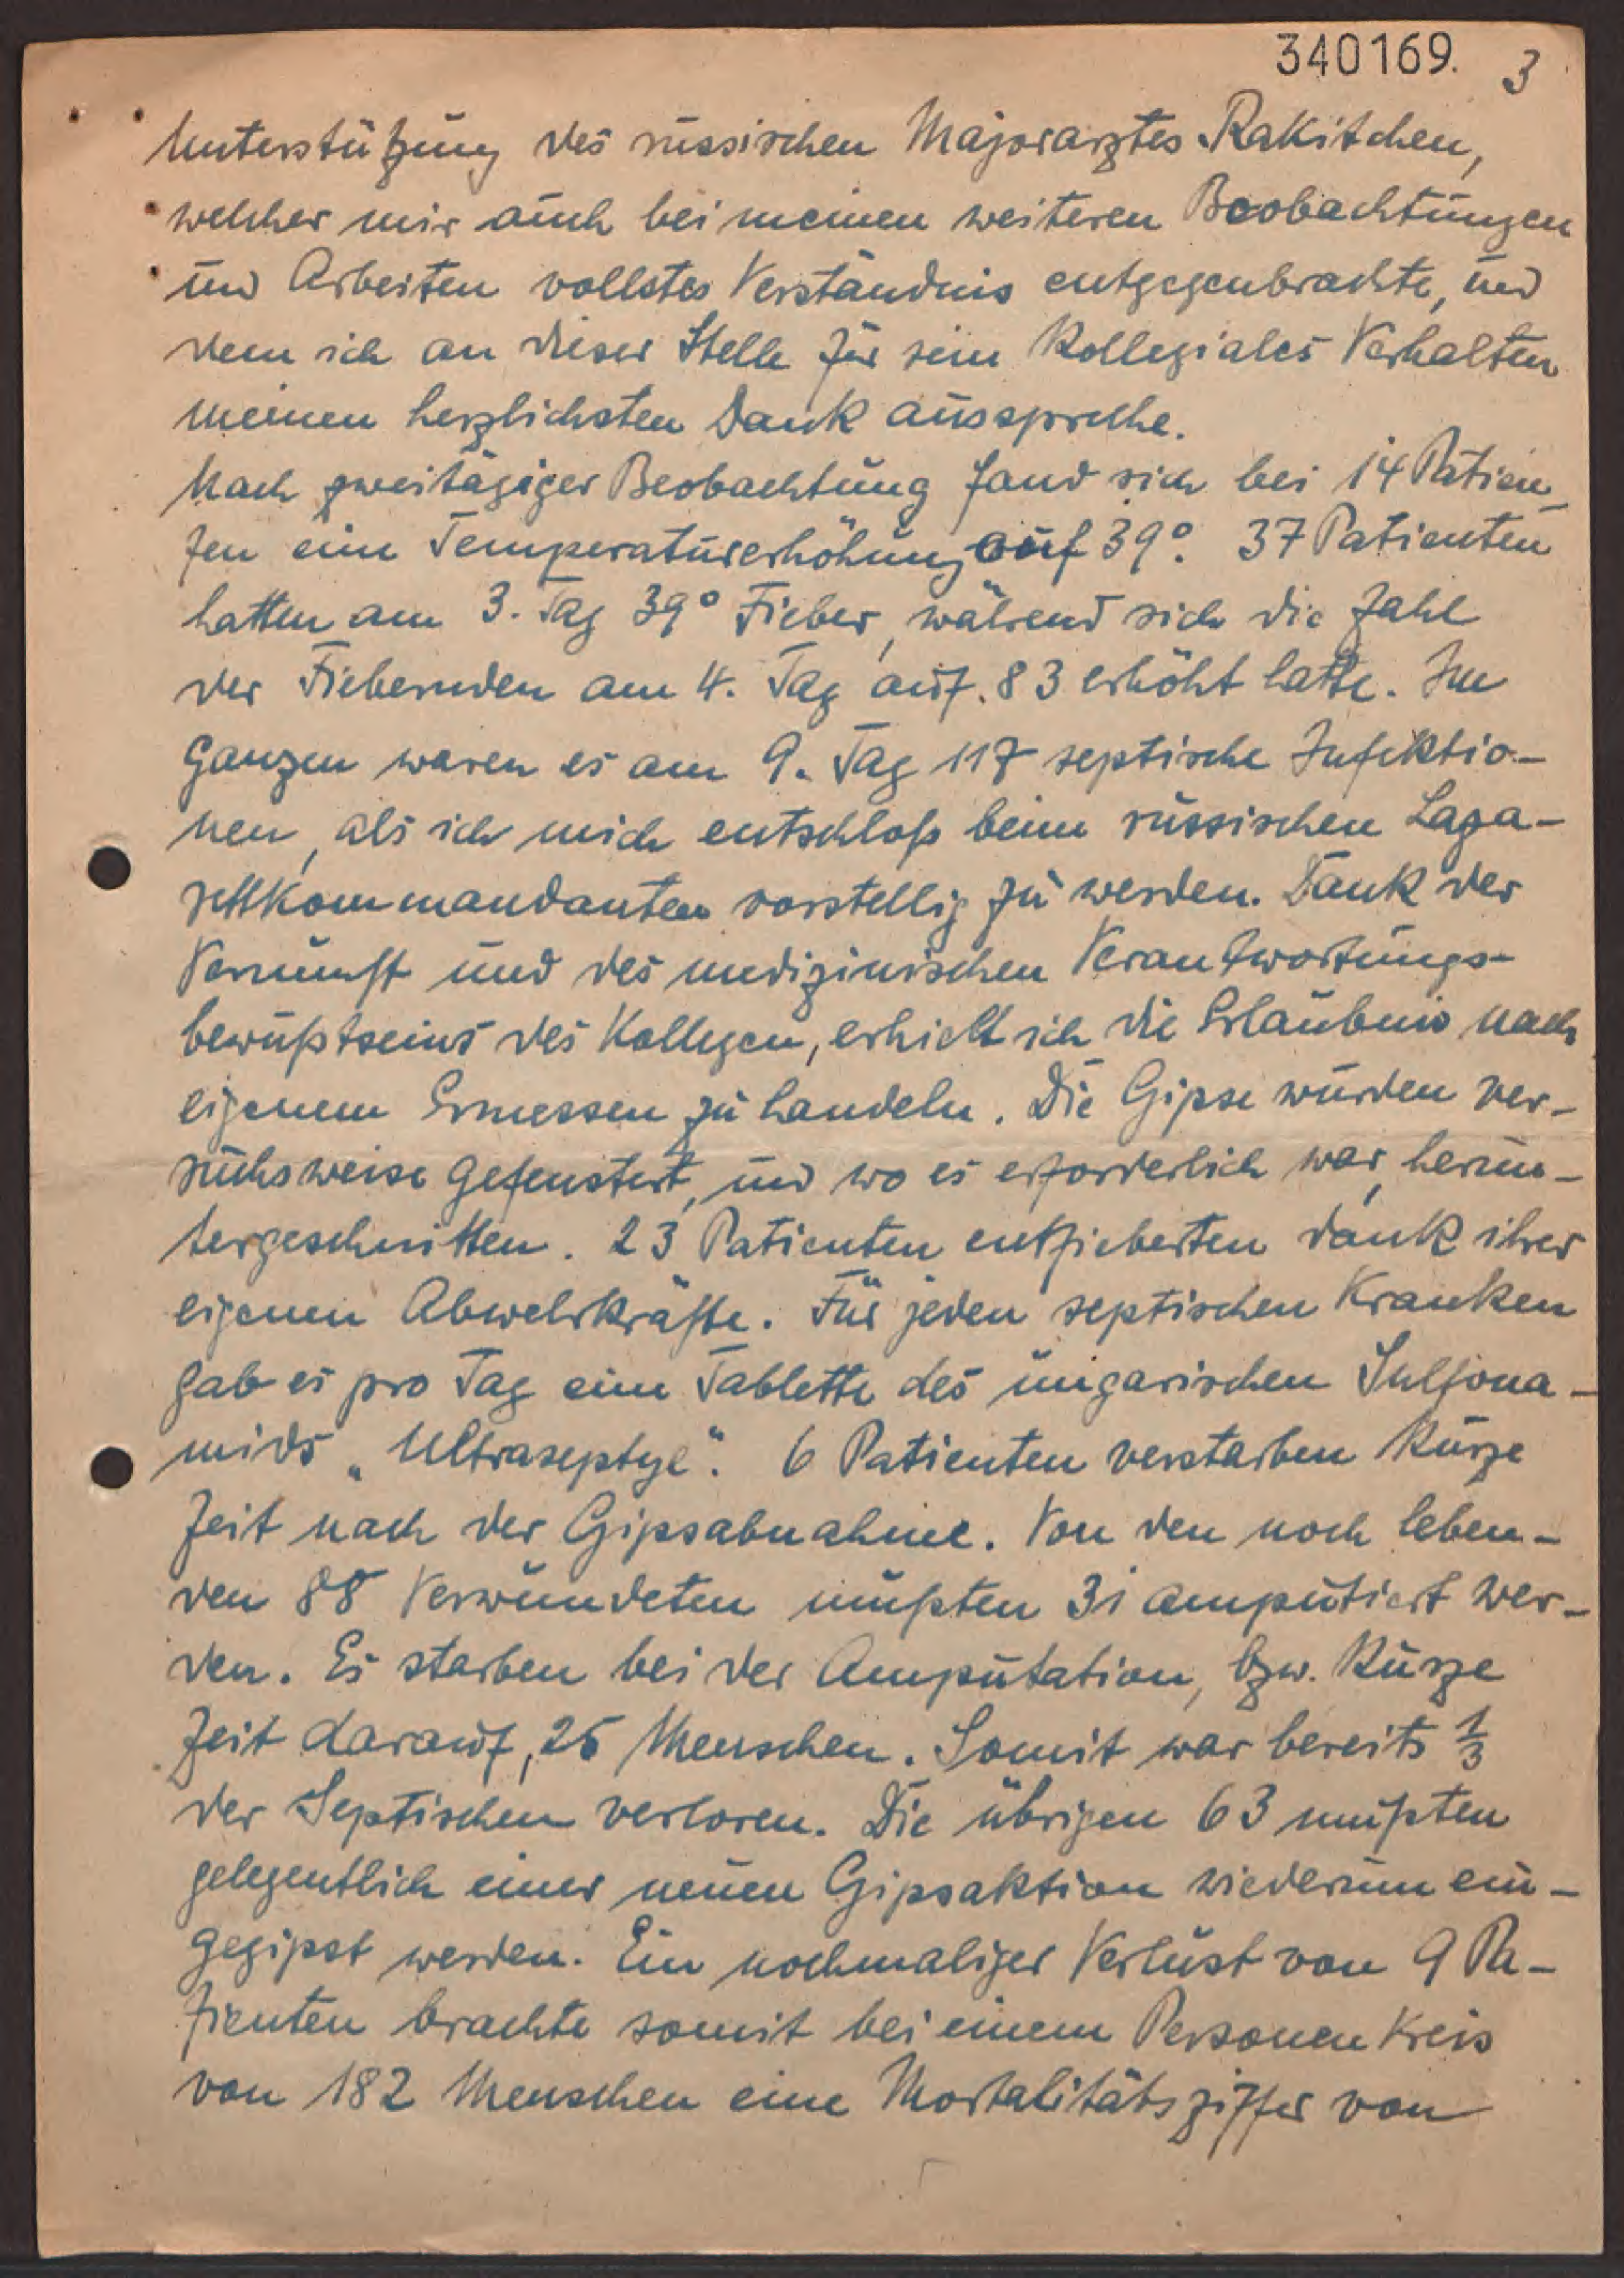 340169. 3
Unterstützung des russischen Majorarztes Rakitchen,
welcher mir auch bei meinen weiteren Beobachtungen
und Arbeiten vollstes Verständnis entgegenbrachte, und
dem ich an dieser Stelle für sein Kollegiales Verhalten
meinen herzlichsten Dank ausspreche.
Nach zweitägiger Beobachtung fand sich bei 14 Patien-
ten eine Temperaturerhöhung auf 39°. 37 Patienten
hatten am 3. Tag 39° Fieber, während sich die Zahl
der Fiebernden am 4. Tag auf 83 erhöht hatte. Im
Ganzen waren es am 9. Tag 117 septische Infektio-
nen, als ich mich entschloß beim russischen Laza-
rettkommandanten vorstellig zu werden. Dank der
Vernunft und des medizinischen Verantwortungs-
bewußtseins des Kollegen, erhielt ich die Erlaubnis nach
eigenem Ermessen zu handeln. Die Gipse wurden ver-
suchsweise gefenstert, und wo es erforderlich war, herun-
tergeschnitten. 23 Patienten entfieberten dank ihrer
eigenen Abwehrkräfte. Für jeden septischen Kranken
gab es pro Tag eine Tablette des ungarischen Sulfona-
mids „Ultraseptyl". 6 Patienten verstarben kurze
Zeit nach der Gipsabnahme. Von den noch leben-
den 88 Verwundeten mußten 31 amputiert wer-
den. Es starben bei der Amputation, bzw. kurze
Zeit darauf, 25 Menschen. Somit war bereits 1/3
der Septischen verloren. Die übrigen 63 mußten
gelegentlich einer neuen Gipsaktion wiederum ein-
gegipst werden. Ein nochmaliger Verlust von 9 Pa-
tienten brachte somit bei einem Personen Kreis
von 182 Menschen eine Mortalitätsziffer von